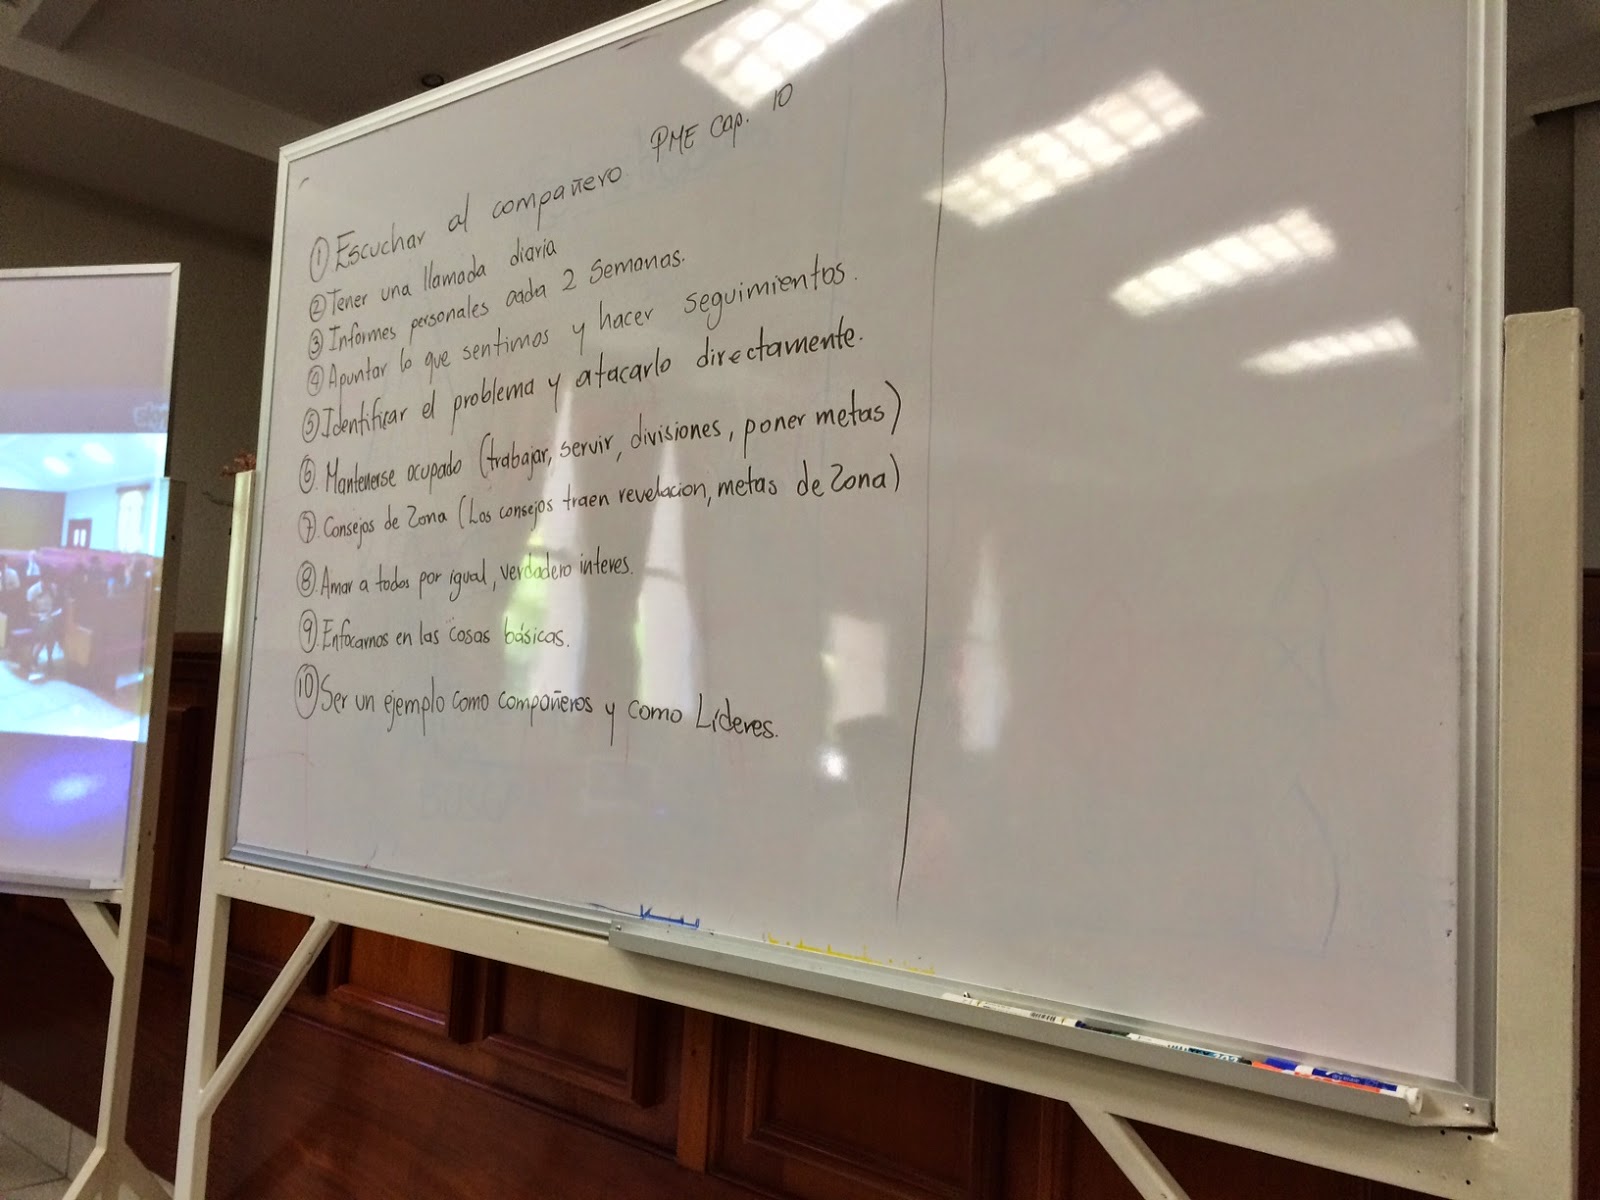 PME Cap. 10
① Escuchar al compañero
② Tener una llamada diaria
③ Informes personales cada 2 semanas.
④ Apuntar lo que sentimos y hacer seguimientos.
⑤ Identificar el problema y atacarlo directamente.
⑥ Mantenerse ocupado (trabajar, servir, divisiones, poner metas)
⑦ Consejos de Zona (Los consejos traen revelacion, metas de Zona)
⑧ Amar a todos por igual, verdadero interes.
⑨ Enfocarnos en las cosas básicas.
⑩ Ser un ejemplo como compañeros y como Líderes.